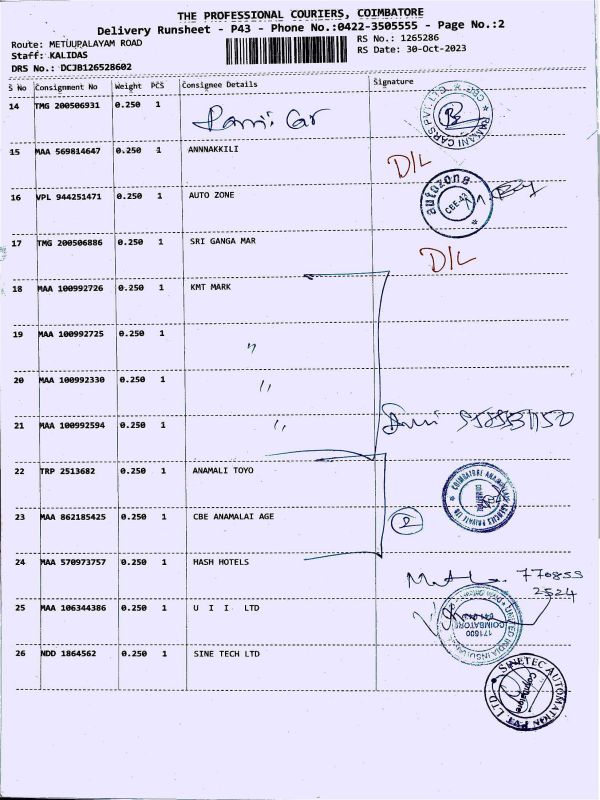 THE PROFESSIONAL COURIERS, COIMBATORE
Delivery Runsheet - P43 - Phone No.:0422-3505555 - Page No.:2
Route: METUUPALAYAM ROAD
RS No.: 1265286
Staff: KALIDAS
RS Date: 30-Oct-2023
DRS No.: DCJB126528602
S No Consignment No Weight PCS Consignee Details Signature
14 TMG 200506931 0.250 1
15 MAA 569814647 0.250 1 ANNNAKKILI D/L
16 VPL 944251471 0.250 1 AUTO ZONE
autozone
CBE-43
17 TMG 200506886 0.250 1 SRI GANGA MAR D/L
18 MAA 100992726 0.250 1 KMT MARK
19 MAA 100992725 0.250 1 "
20 MAA 100992330 0.250 1 "
21 MAA 100992594 0.250 1 "
22 TRP 2513682 0.250 1 ANAMALI TOYO
23 MAA 862185425 0.250 1 CBE ANAMALAI AGE 2
24 MAA 570973757 0.250 1 HASH HOTELS
770855
2524
25 MAA 106344386 0.250 1 U I I LTD
171600
COIMBATORE
26 NDD 1864562 0.250 1 SINE TECH LTD